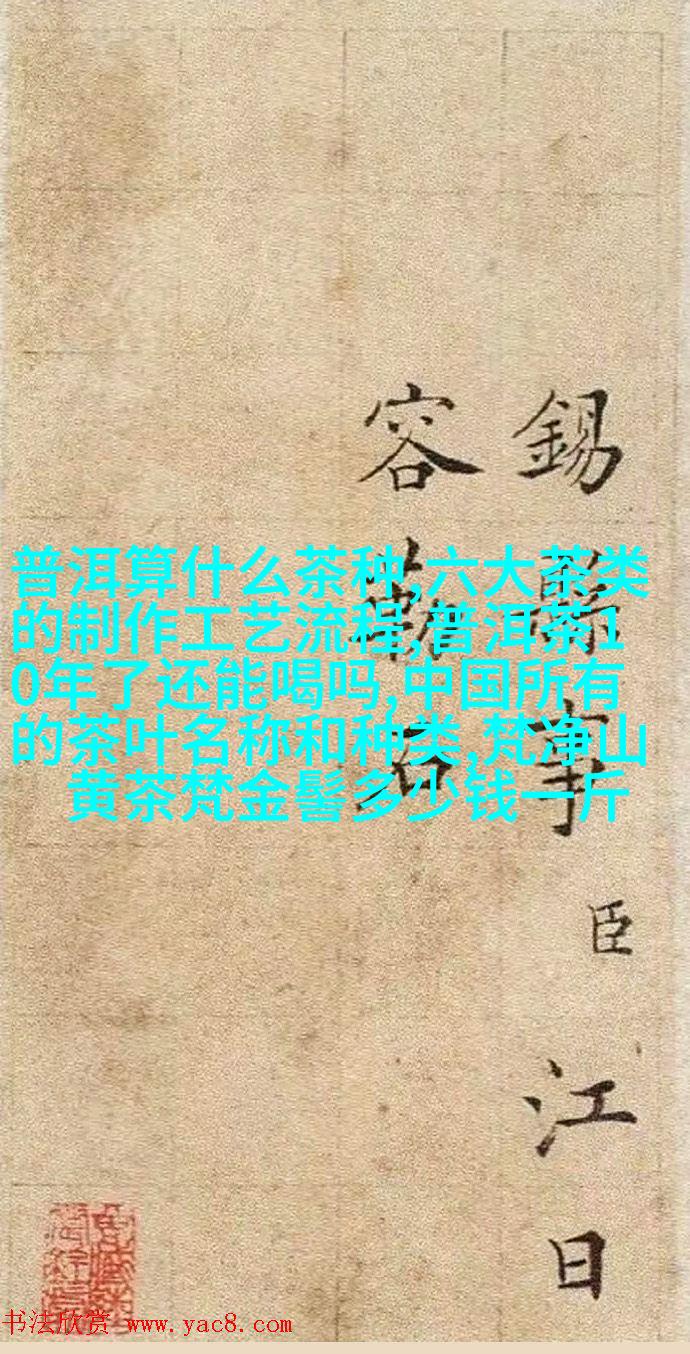 普洱算什么茶种,六大茶类
的制作工艺流程,普洱茶1
0年了还能喝吗,中国所有
的茶叶名称和种类,梵净山
黄茶梵金髻多少钱一斤
錫事臣江日
容
书法欣赏 www.yac8.com